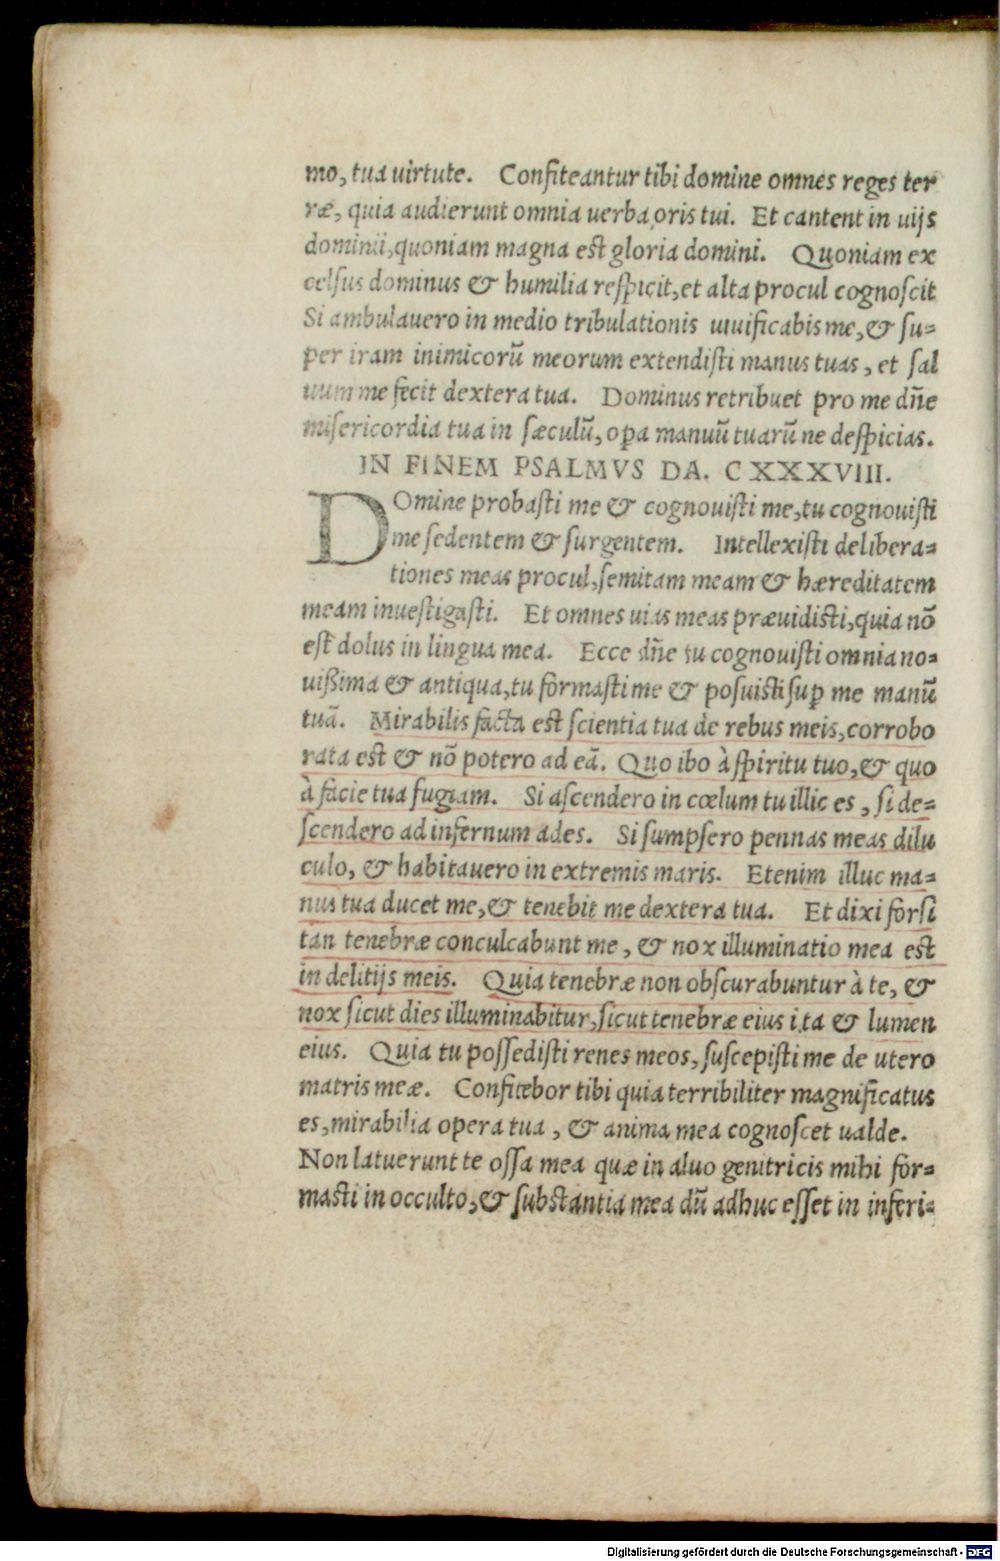 mo, tua uirtute. Confiteantur tibi domine omnes reges ter
ræ, quia audierunt omnia uerba oris tui. Et cantent in uijs
dominii, quoniam magna est gloria domini. Quoniam ex
celsus dominus & humilia respicit, et alta procul cognoscit
Si ambulauero in medio tribulationis uiuificabis me, & su=
per iram inimicorũ meorum extendisti manus tuas, et sal
uum me fecit dextera tua. Dominus retribuet pro me dñe
misericordia tua in sæculũ, opa manuũ tuarũ ne despicias.
IN FINEM PSALMVS DA. CXXXVIII.
DOmine probasti me & cognouisti me, tu cognouisti
me sedentem & surgentem. Intellexisti delibera=
tiones meas procul, semitam meam & hæreditatem
meam inuestigasti. Et omnes uias meas præuidisti, quia nõ
est dolus in lingua mea. Ecce dñe tu cognouisti omnia no=
uißima & antiqua, tu formasti me & posuisti sup me manũ
tuã. Mirabilis facta est scientia tua de rebus meis, corrobo
rata est & nõ potero ad eã. Quo ibo à spiritu tuo, & quo
à facie tua fugiam. Si ascendero in cœlum tu illic es, si de=
scendero ad infernum ades. Si sumpsero pennas meas dilu
culo, & habitauero in extremis maris. Etenim illuc ma=
nus tua ducet me, & tenebit me dextera tua. Et dixi forsi
tan tenebræ conculcabunt me, & nox illuminatio mea est
in delitijs meis. Quia tenebræ non obscurabuntur à te, &
nox sicut dies illuminabitur, sicut tenebræ eius ita & lumen
eius. Quia tu possedisti renes meos, suscepisti me de utero
matris meæ. Confitebor tibi quia terribiliter magnificatus
es, mirabilia opera tua, & anima mea cognoscet ualde.
Non latuerunt te ossa mea quæ in aluo genitricis mihi for=
masti in occulto, & substantia mea dũ adhuc esset in inferi=
Digitalisierung gefördert durch die Deutsche Forschungsgemeinschaft - DFG